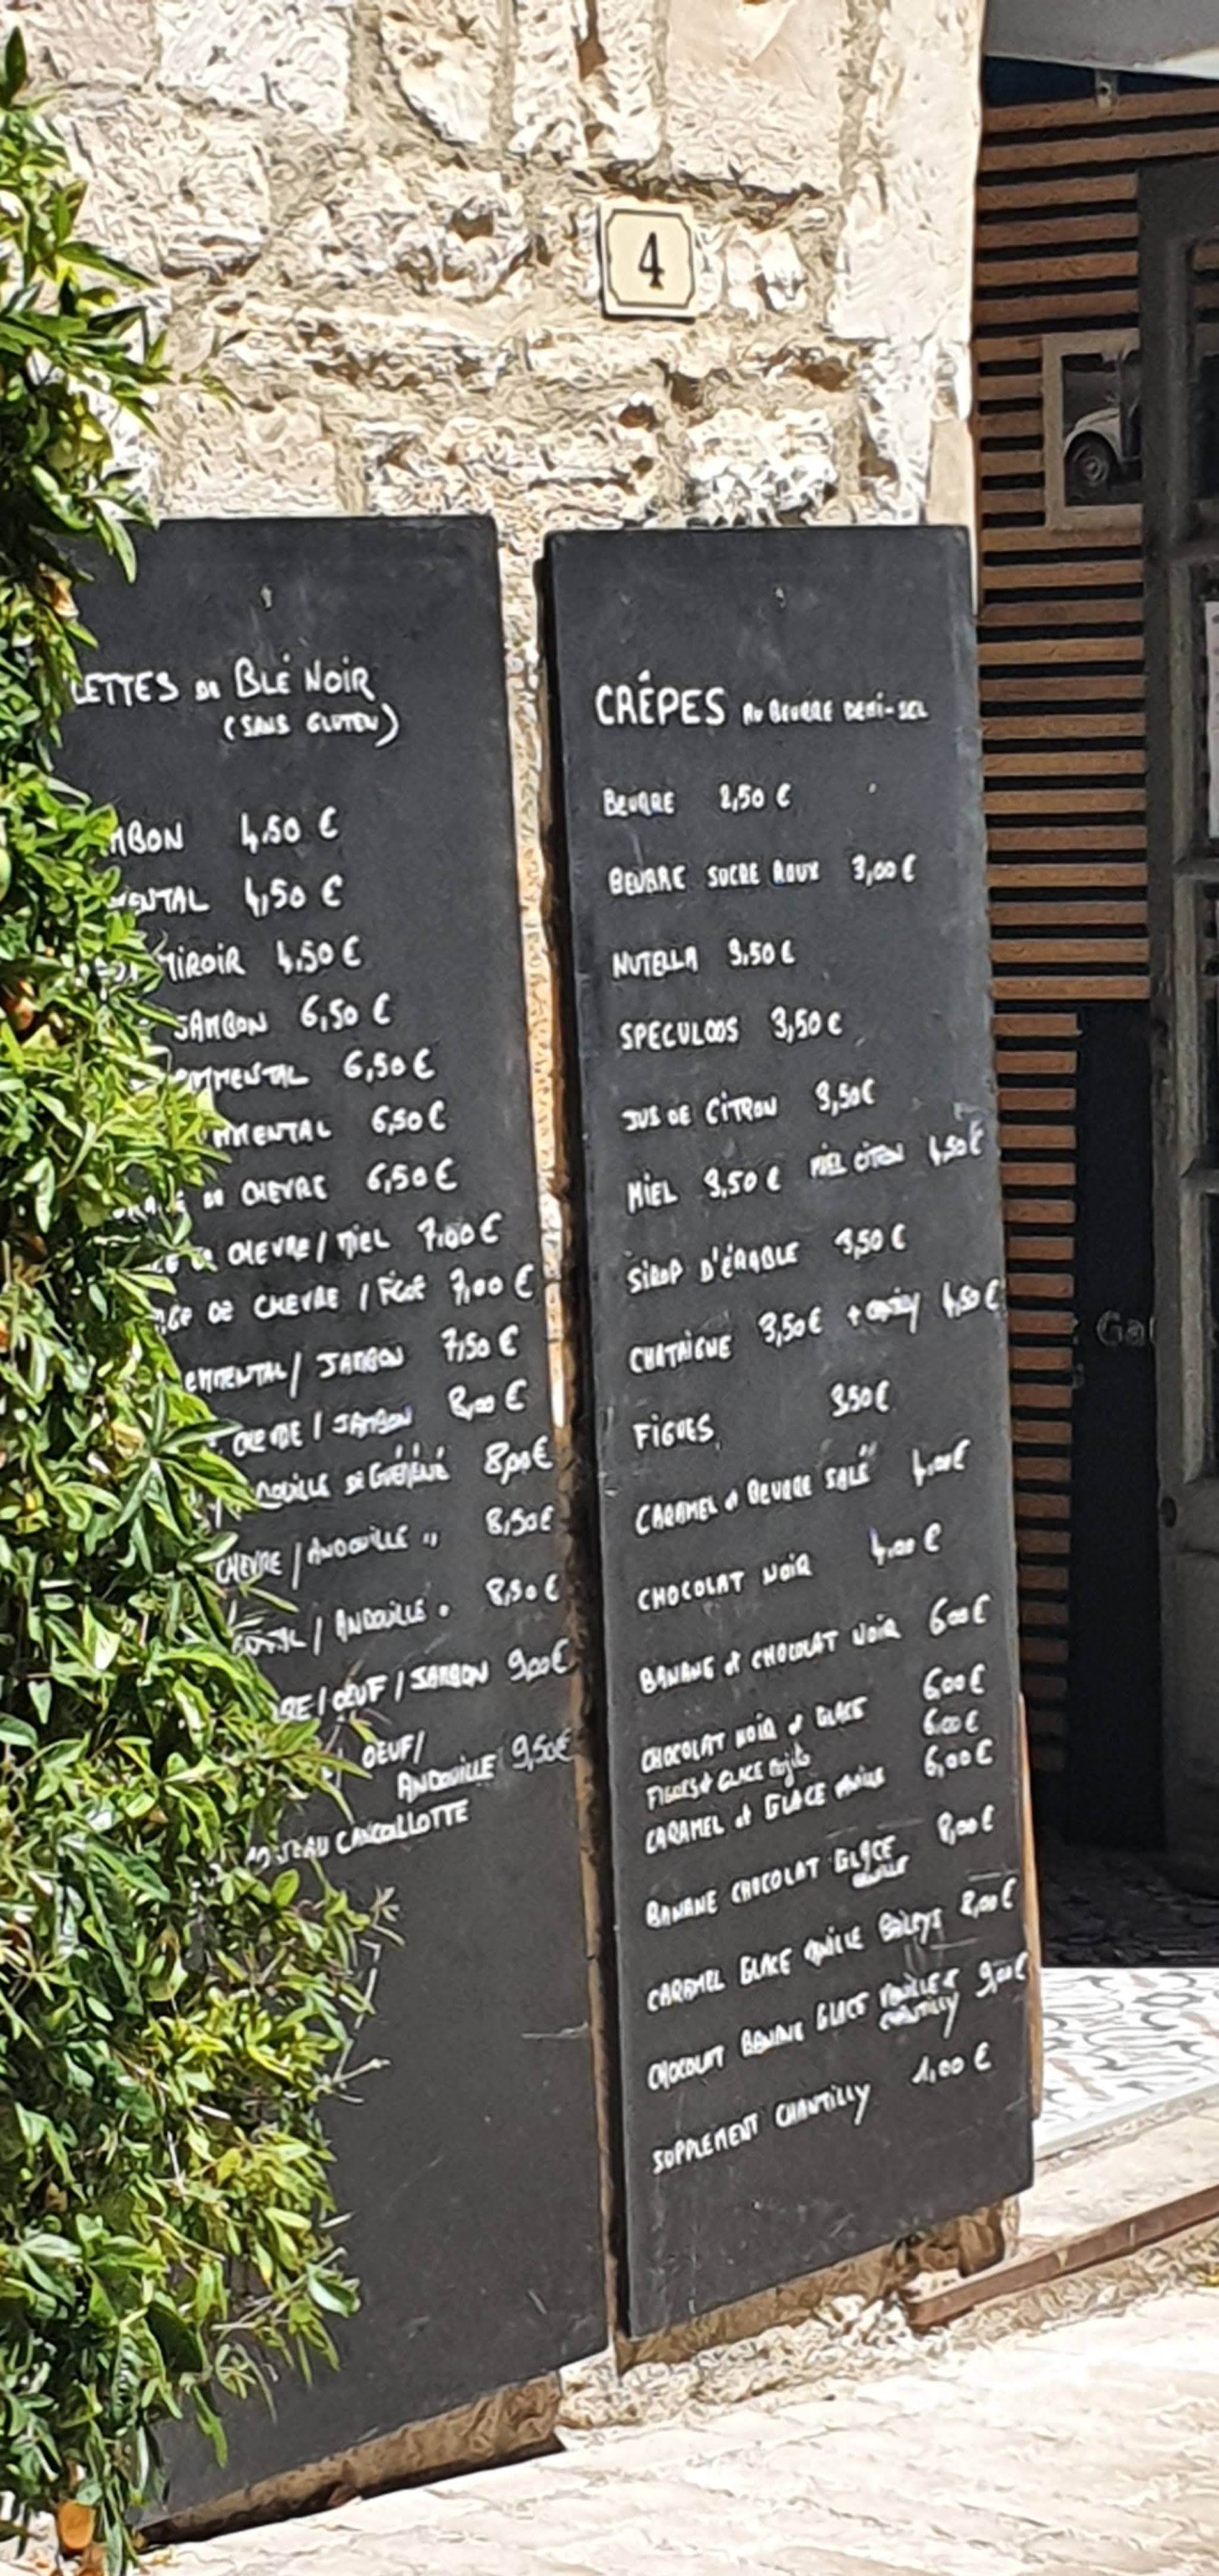 4
LETTES DE BLÉ NOIR
(SANS GLUTEN)
MBON 4,50 €
MENTAL 4,50 €
MIROIR 4,50 €
JAMBON 6,50 €
EMMENTAL 6,50 €
MMENTAL 6,50 €
DE CHEVRE 6,50 €
CHEVRE / MIEL 7,00 €
DE CHEVRE / FIGUE 7,00 €
EMMENTAL / JAMBON 7,50 €
CHEVRE / JAMBON 8,00 €
DOUILLE DE GUÉMÉNÉ 8,00 €
CHEVRE / ANDOUILLE " 8,50 €
/ ANDOUILLE " 8,50 €
RE / OEUF / JAMBON 9,00 €
/ OEUF /
ANDOUILLE 9,50 €
CANCOILLOTTE
CRÊPES AU BEURRE DEMI-SEL
BEURRE 2,50 €
BEURRE SUCRE ROUX 3,00 €
NUTELLA 3,50 €
SPECULOOS 3,50 €
JUS DE CITRON 3,50 €
MIEL 3,50 € MIEL CITRON 4,50 €
SIROP D'ÉRABLE 3,50 €
CHATAIGNE 3,50 € + CHANTILLY 4,50 €
FIGUES 3,50 €
CARAMEL AU BEURRE SALÉ 4,00 €
CHOCOLAT NOIR 4,00 €
BANANE et CHOCOLAT NOIR 6,00 €
CHOCOLAT NOIR et GLACE 6,00 €
FIGUES et GLACE 6,00 €
CARAMEL et GLACE VANILLE 6,00 €
BANANE CHOCOLAT GLACE 8,00 €
VANILLE
CARAMEL GLACE VANILLE BAILEYS 8,00 €
CHOCOLAT BANANE GLACE VANILLE et 9,00 €
CHANTILLY
SUPPLEMENT CHANTILLY 1,00 €